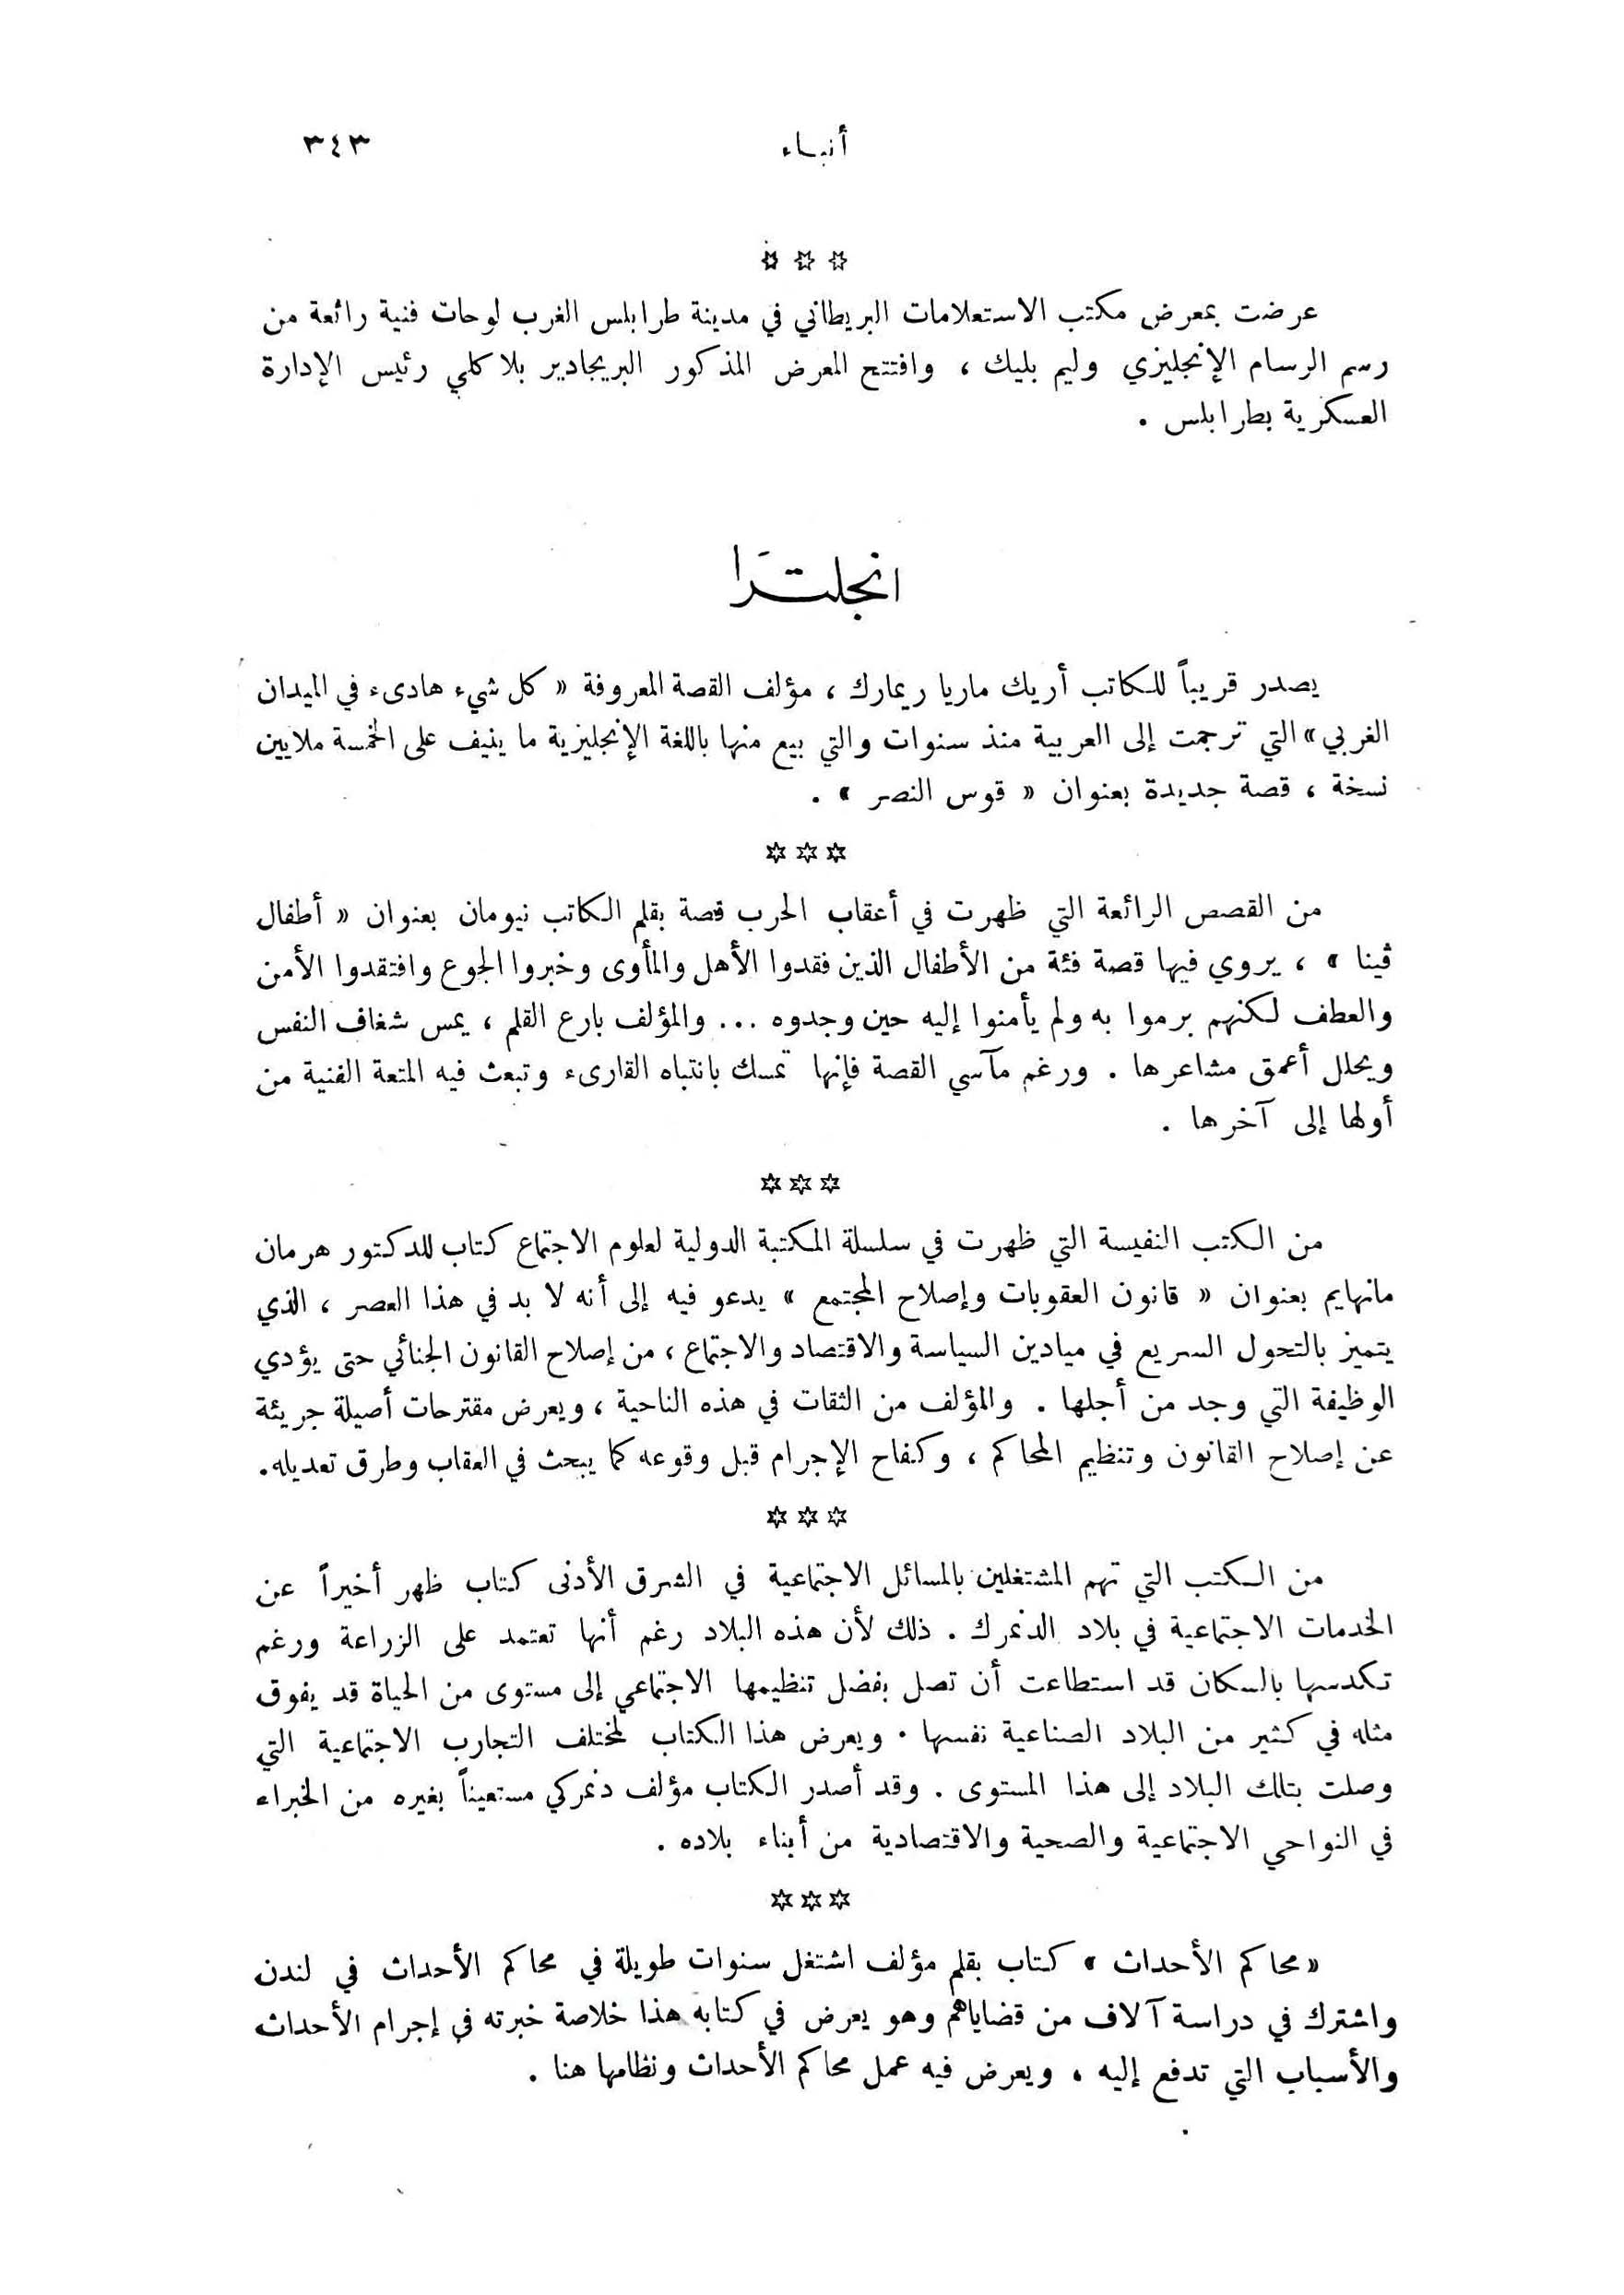 أنباء ٣٤٣
* * *
عرضت بمعرض مكتب الاستعلامات البريطاني في مدينة طرابلس الغرب لوحات فنية رائعة من
رسم الرسام الإنجليزي وليم بليك ، وافتتح المعرض المذكور البريجادير بلاكلي رئيس الإدارة
العسكرية بطرابلس .
انجلترا
يصدر قريباً للكاتب أريك ماريا ريمارك ، مؤلف القصة المعروفة « كل شيء هادىء في الميدان
الغربي » التي ترجمت إلى العربية منذ سنوات والتي بيع منها باللغة الإنجليزية ما ينيف على الخمسة ملايين
نسخة ، قصة جديدة بعنوان « قوس النصر » .
* * *
من القصص الرائعة التي ظهرت في أعقاب الحرب قصة بقلم الكاتب نيومان بعنوان « أطفال
ڤينا » ، يروي فيها قصة فئة من الأطفال الذين فقدوا الأهل والمأوى وخبروا الجوع وافتقدوا الأمن
والعطف لكنهم برموا به ولم يأمنوا إليه حين وجدوه ... والمؤلف بارع القلم ، يمس شغاف النفس
ويحلل أعمق مشاعرها . ورغم مآسي القصة فإنها تمسك بانتباه القارىء وتبعث فيه المتعة الفنية من
أولها إلى آخرها .
* * *
من الكتب النفيسة التي ظهرت في سلسلة المكتبة الدولية لعلوم الاجتماع كتاب للدكتور هرمان
مانهايم بعنوان « قانون العقوبات وإصلاح المجتمع » يدعو فيه إلى أنه لا بد في هذا العصر ، الذي
يتميز بالتحول السريع في ميادين السياسة والاقتصاد والاجتماع ، من إصلاح القانون الجنائي حتى يؤدي
الوظيفة التي وجد من أجلها . والمؤلف من الثقات في هذه الناحية ، ويعرض مقترحات أصيلة جريئة
عن إصلاح القانون وتنظيم المحاكم ، وكفاح الإجرام قبل وقوعه كما يبحث في العقاب وطرق تعديله .
* * *
من الكتب التي تهم المشتغلين بالمسائل الاجتماعية في الشرق الأدنى كتاب ظهر أخيراً عن
الخدمات الاجتماعية في بلاد الدنمرك . ذلك لأن هذه البلاد رغم أنها تعتمد على الزراعة ورغم
تكدسها بالسكان قد استطاعت أن تصل بفضل تنظيمها الاجتماعي إلى مستوى من الحياة قد يفوق
مثله في كثير من البلاد الصناعية نفسها . ويعرض هذا الكتاب لمختلف التجارب الاجتماعية التي
وصلت بتلك البلاد إلى هذا المستوى . وقد أصدر الكتاب مؤلف دنمركي مستعيناً بغيره من الخبراء
في النواحي الاجتماعية والصحية والاقتصادية من أبناء بلاده .
* * *
« محاكم الأحداث » كتاب بقلم مؤلف اشتغل سنوات طويلة في محاكم الأحداث في لندن
واشترك في دراسة آلاف من قضاياهم وهو يعرض في كتابه هذا خلاصة خبرته في إجرام الأحداث
والأسباب التي تدفع إليه ، ويعرض فيه عمل محاكم الأحداث ونظامها هنا .